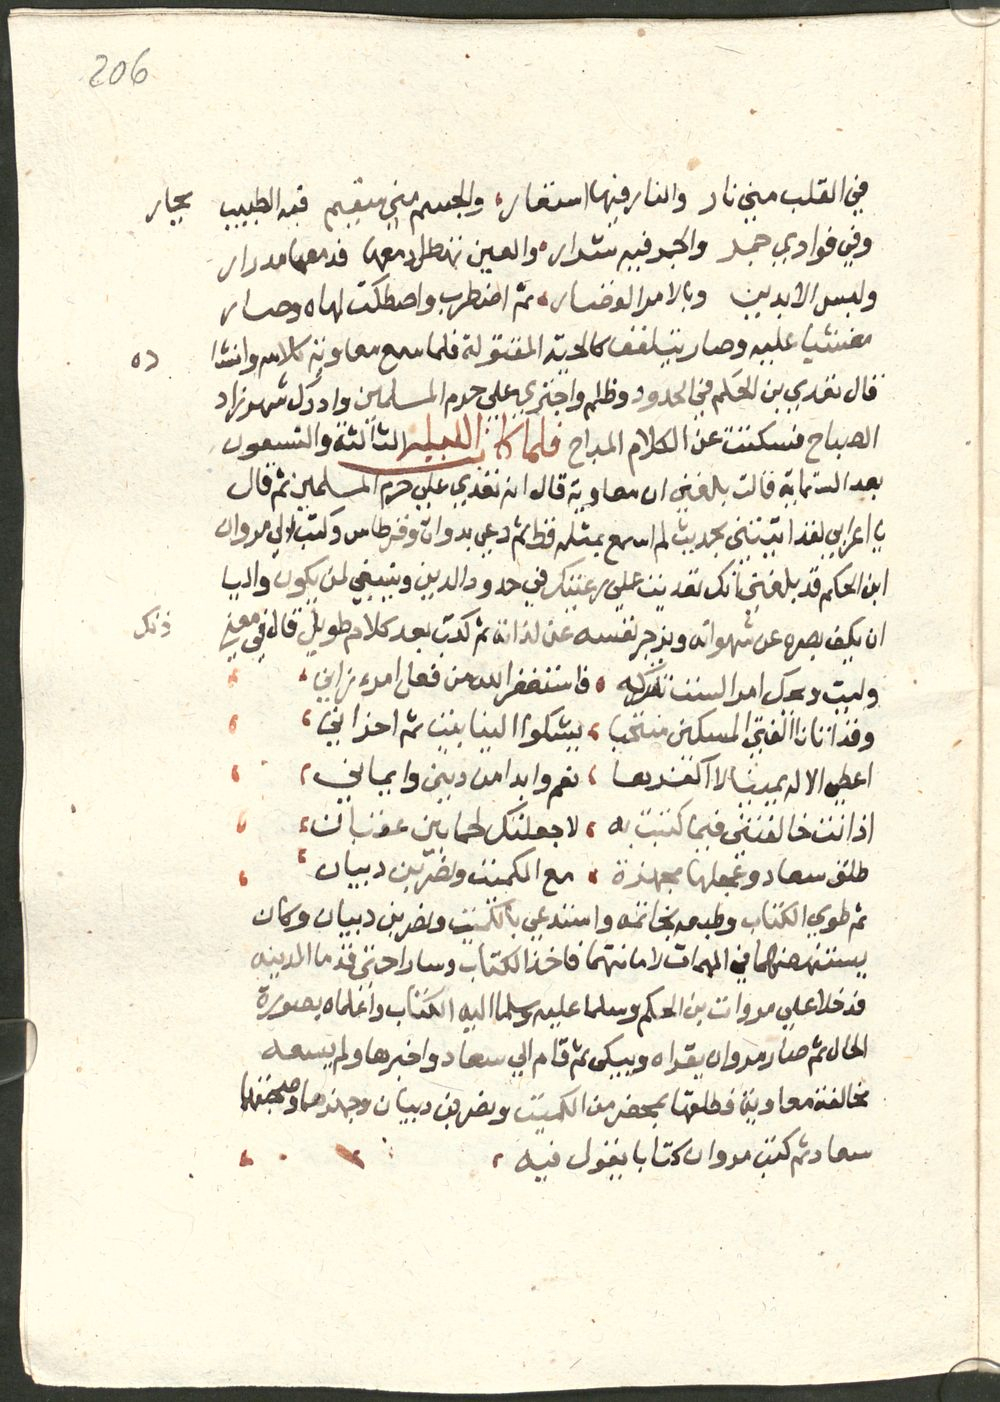 206
في القلب مني نار والنار فيها استغار والجسم مني سقيم فيه الطبيب يحار
وفي فوادي جمر والجمر فيه شرار والعين تهطل دمعها فدمعها مدرار
وليس الا بدين وبالامر الوضار ثم اضطرب واصطكت لهاه وصار
مغشيا عليه وصار يتلفف كالحية المقتولة فلما سمع معاوية كلامه وانشاده
قال تعدي بن الحكم في الحدود وظلم واجتري علي حرم المسلمين وادرك شهرزاد
الصباح فسكتت عن الكلام المباح فلما كانت الليله الثالثة والتسعون
بعد الستماية قالت بلغني ان معاوية قال انه تعدي علي حرم المسلمين ثم قال
يا اعرابي لقد اتيتني بحديث لم اسمع بمثله قط ثم دعي بدواة وقرطاس وكتب الي مروان
ابن الحكم قد بلغني انك تعديت علي رعيتك في حدود الدين وينبغي لمن يكون واليا
ان يكف بصره عن شهواته ويزجر نفسه عن لذاته ثم كتب بعد كلام طويل قال في معني ذلك
وليت ويحك امرا لست تدركه فاستغفر الله من فعل امرء زاني
وقد اتانا الفتي المسكين منتحبا يشكوا الينا ببث ثم احزاني
اعطي الاله يمينا لا اكفرها نعم وابدا من ديني وايماني
اذا انت خالفتني فيما كتبت به لاجعلنك لحما بين عقبان
طلق سعاد وعجلها مجهزة مع الكميت ونصر بن دبيان
ثم طوي الكتاب وطبعه بخاتمه واستدعي بالكميت ونصر بن دبيان وكان
يستنهضهما في المهمات لامانتهما فاخذا الكتاب وسارا حتي قدما المدينه
فدخلا علي مروان بن الحكم وسلما عليه وسلما اليه الكتاب واعلماه بصورة
الحال ثم صار مروان يقراه ويبكي ثم قام الي سعاد واخبرها ولم يسعه
مخالفة معاوية فطلقها بمحضر من الكميت ونصر بن دبيان وجهزهما وصحبتهما
سعاد ثم كتب مروان كتابا يقول فيه